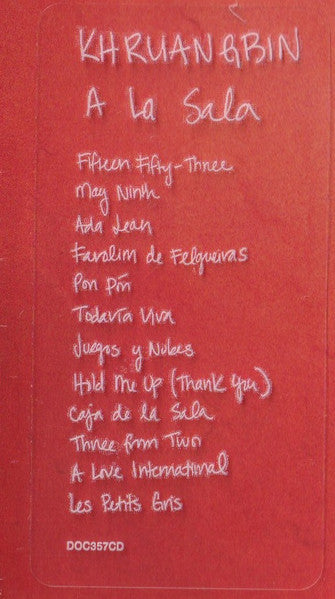 KHRUANGBIN
A La Sala
Fifteen Fifty-Three
May Ninth
Ada Jean
Farolim de Felgueiras
Pon Pón
Todavía Viva
Juegos y Nubes
Hold Me Up (Thank You)
Caja de la Sala
Three from Two
A Love International
Les Petits Gris
DOC357CD